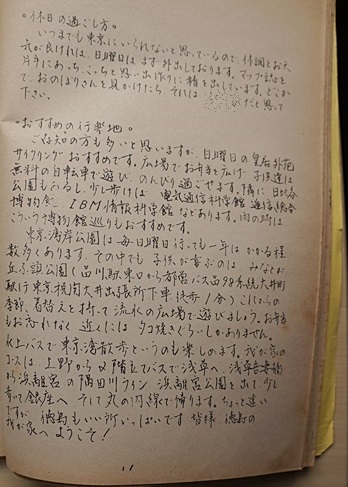 ◦休日の過ごし方。
いつまでも東京にいられないと思っているので 体調とお天
気が良ければ、日曜日はまず外出しております。マップ誌を
片手にあっちこっちと思い出作りに精を出しています。どこか
で、おのぼりさんを見かけたら それは だと思って
下さい。
◦おすすめの行楽地。
ご存知の方も多いと思いますが、日曜日の皇居外苑
サイクリングおすすめです。広場でお弁当を広げ 子供達は
無料の自転車で遊び のんびり過ごせます。隣に日比谷
公園もあるし、少し歩けば 電気通信科学館 逓信総合
博物館 IBM情報科学館 などあります。雨の時は
こういう博物館巡りもおすすめです。
東京湾岸公園は毎日曜日行っても一年はかかる程
数多くあります。その中でも 子供が喜ぶのは みなとが
丘ふ頭公園 (品川駅東口から都営バス品98系統大井町
駅行東京税関大井出張所下車 徒歩1分) これからの
季節、着替えを持って 流水の広場で遊びましょう。お弁当
もお忘れなく 近くには タコ焼きぐらいしかありません。
水上バスで東京湾散歩というのも楽しめます。我が家の
コースは 上野から2階立てバスで浅草へ、浅草吾妻橋
から浜離宮の隅田川ライン 浜離宮公園を出て少し
歩いて銀座へ そして丸の内線で帰ります。ちょっと遠い
ですが 徳島もいい所いっぱいです 皆様 徳島の
我が家へようこそ!